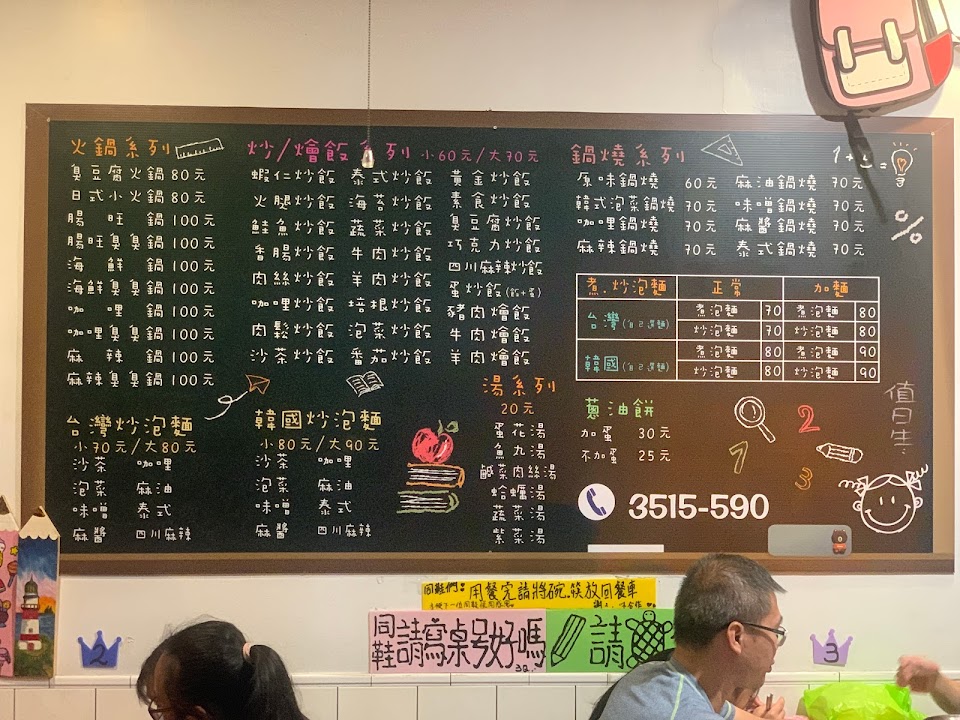 火鍋系列
臭豆腐火鍋 80元
日式小火鍋 80元
腸旺鍋 100元
腸旺臭臭鍋 100元
海鮮鍋 100元
海鮮臭臭鍋 100元
咖哩鍋 100元
咖哩臭臭鍋 100元
麻辣鍋 100元
麻辣臭臭鍋 100元
炒/燴飯系列 小60元/大70元
蝦仁炒飯 泰式炒飯 黃金炒飯
火腿炒飯 海苔炒飯 素食炒飯
鮭魚炒飯 蔬菜炒飯 臭豆腐炒飯
香腸炒飯 牛肉炒飯 巧克力炒飯
肉絲炒飯 羊肉炒飯 四川麻辣炒飯
咖哩炒飯 培根炒飯 蛋炒飯
肉鬆炒飯 泡菜炒飯 豬肉燴飯
沙茶炒飯 番茄炒飯 牛肉燴飯
羊肉燴飯
鍋燒系列
原味鍋燒 60元 麻油鍋燒 70元
韓式泡菜鍋燒 70元 味噌鍋燒 70元
咖哩鍋燒 70元 麻醬鍋燒 70元
麻辣鍋燒 70元 泰式鍋燒 70元
煮.炒泡麵 正常 加麵
台灣(自己選麵) 煮泡麵 70 煮泡麵 80
炒泡麵 70 炒泡麵 80
韓國(自己選麵) 煮泡麵 80 煮泡麵 90
炒泡麵 80 炒泡麵 90
台灣炒泡麵
小70元/大80元
沙茶 咖哩
泡菜 麻油
味噌 泰式
麻醬 四川麻辣
韓國炒泡麵
小80元/大90元
沙茶 咖哩
泡菜 麻油
味噌 泰式
麻醬 四川麻辣
湯系列
20元
蛋花湯
魚丸湯
鹹菜肉絲湯
蛤蠣湯
蔬菜湯
紫菜湯
蔥油餅
加蛋 30元
不加蛋 25元
3515-590
值日生:
%
1
2
3
同鞋們: 用餐完請將碗.筷放回餐車
同鞋請寫桌号好嗎
請
2
3